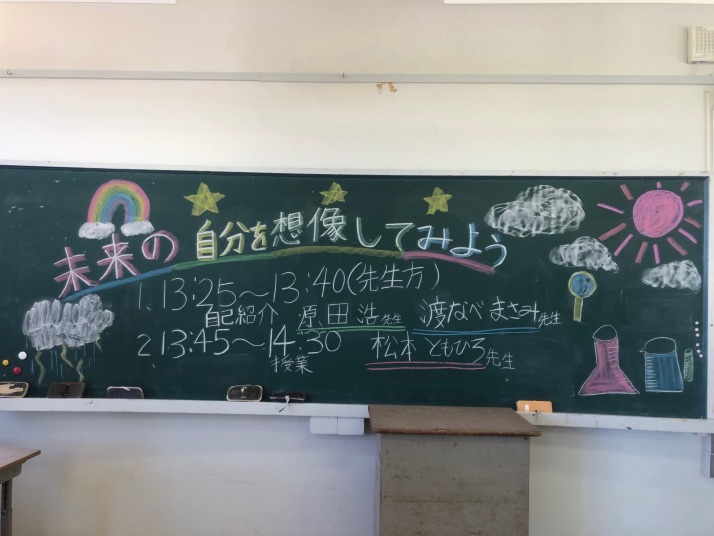 未来の自分を想像してみよう
1. 13:25〜13:40(先生方)
自己紹介 原田浩先生 渡なべまさみ先生
2. 13:45〜14:30 松本ともひろ先生
授業